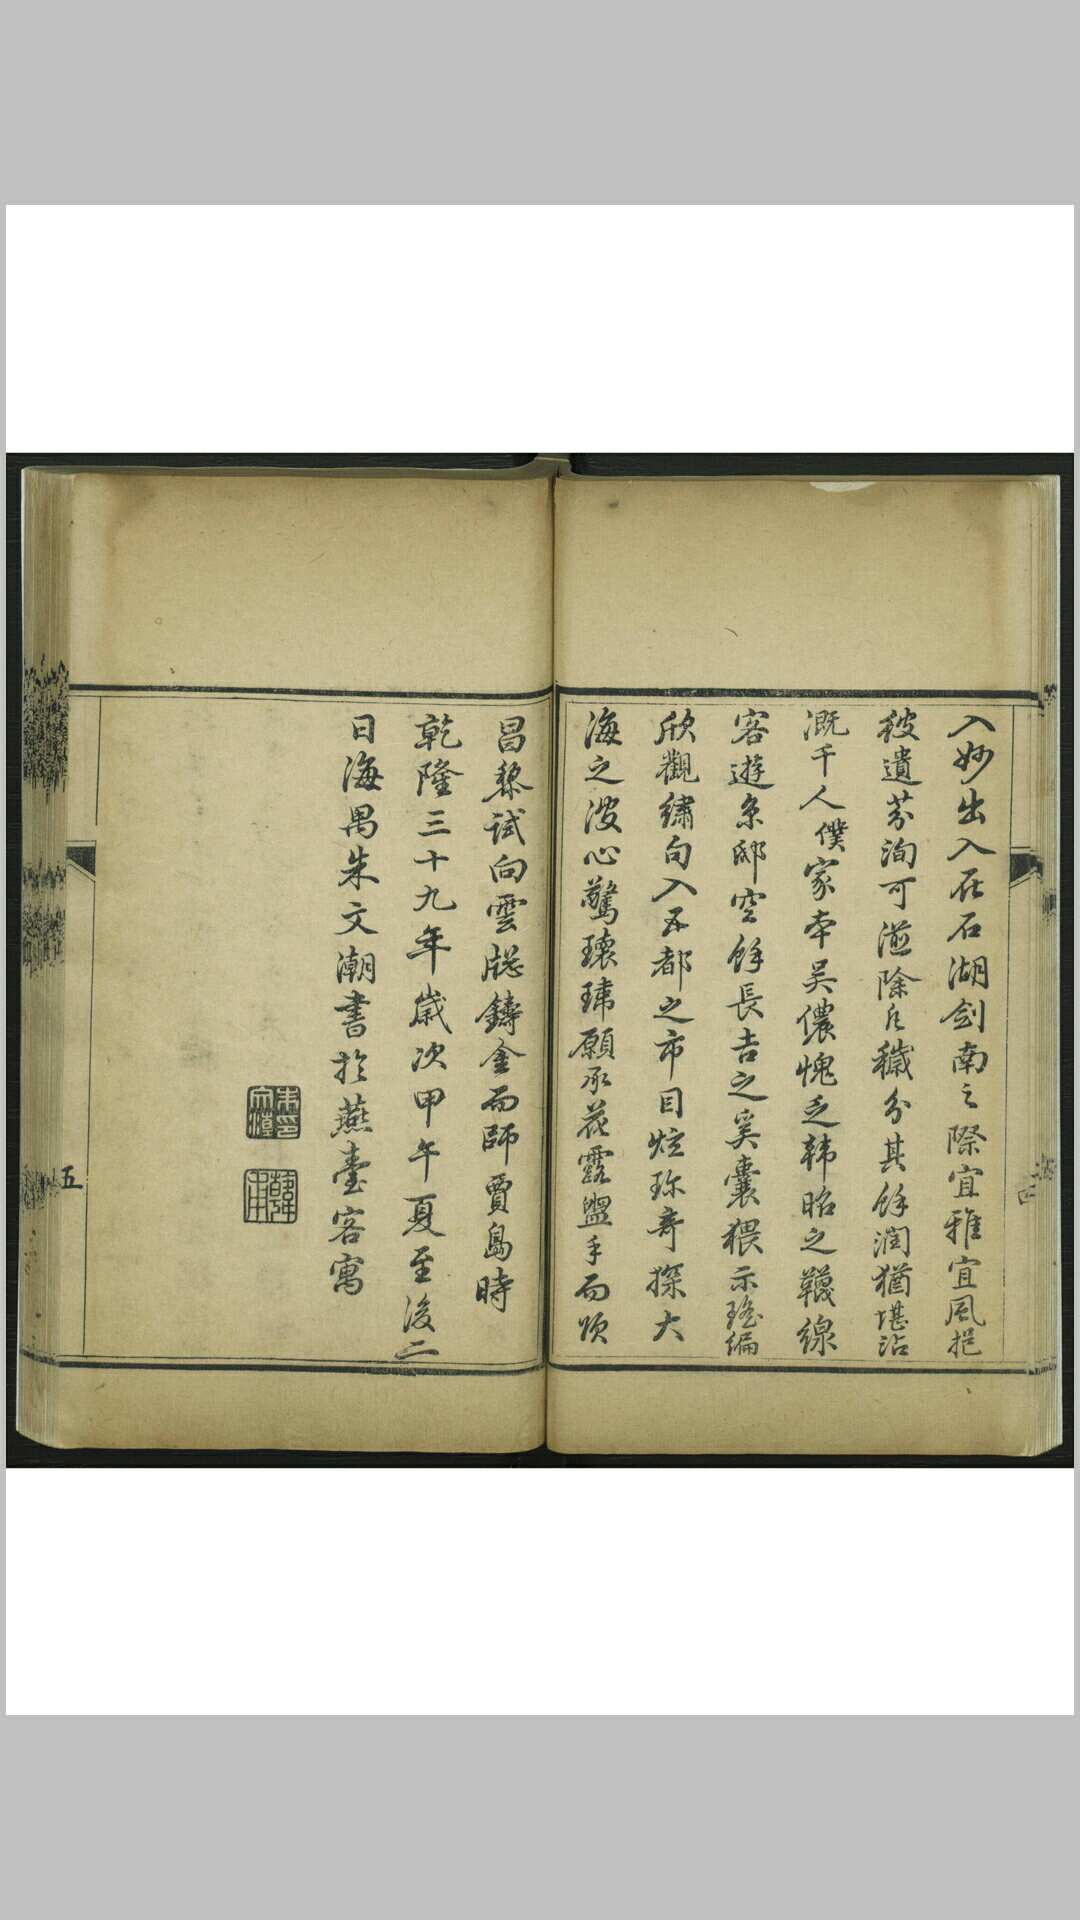 入妙出入在石湖劍南之際宜雅宜風挹
彼遺芬洵可滋除凡穢分其餘潤猶堪沾
溉千人僕家本吳儂愧乏韩昭之韈線
客遊京邸空餘長吉之奚囊猥示瑤編
欣觀繡句入五都之市目炫珍奇探大
海之波心驚瓌瑋願承花露盥手而頌
昌黎試向雲牎鑄金而師賈島時
乾隆三十九年歲次甲午夏至後二
日海禺朱文潮書於燕臺客寓
五